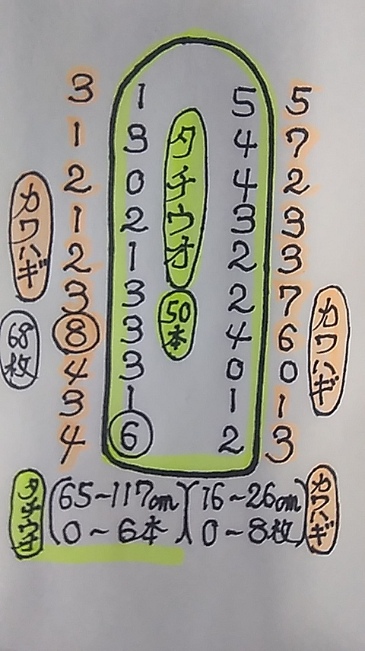 3 1 5 5
1 3 4 7
2 0 4 2
1 2 3 3
2 1 2 3
3 3 2 7
8 3 4 6
4 3 0 0
3 1 1 1
4 6 2 3
タチウオ
50本
カワハギ
68枚
カワハギ
タチウオ (65~117cm 0~6本)
(16~26cm 0~8枚) カワハギ